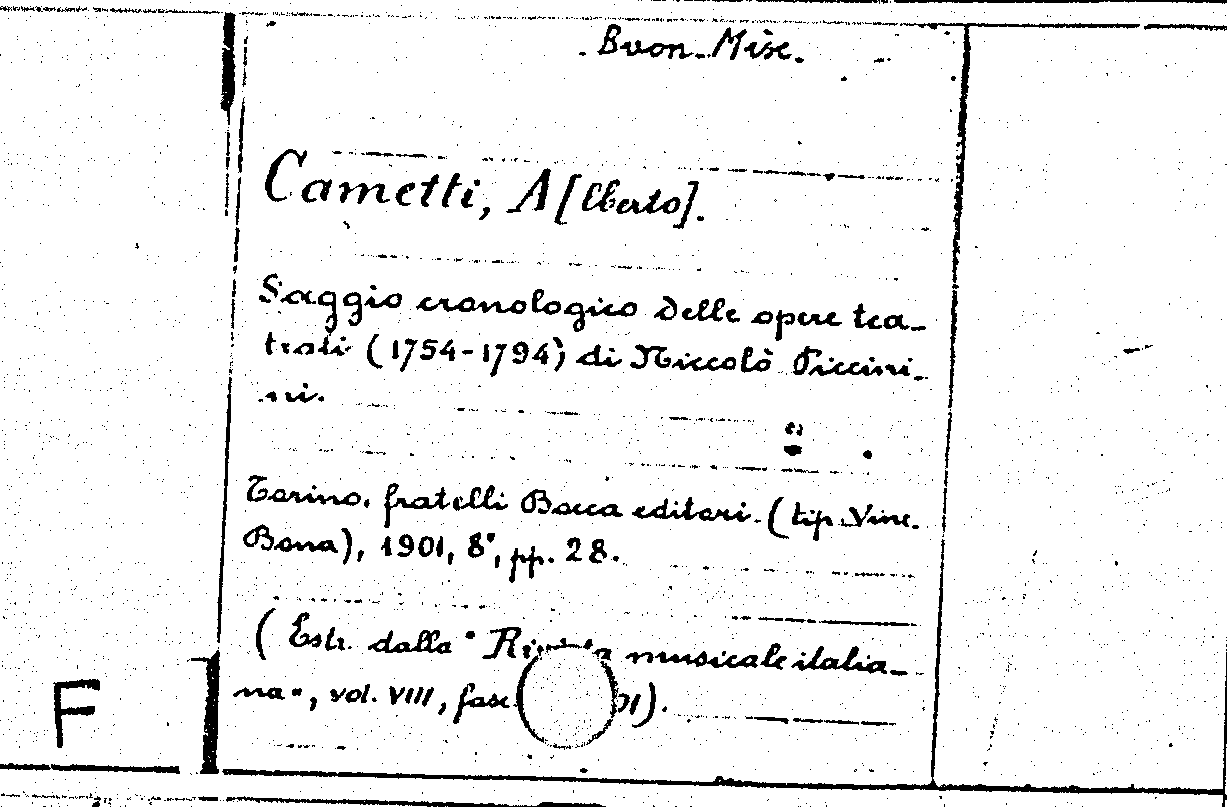 Buon. Misc.
Cametti, A[lberto].
Saggio cronologico delle opere tea-
trali (1754-1794) di Niccolò Piccini-
ni.
Torino, fratelli Bocca editori. (tip. Vinc.
Bona), 1901, 8°, pp. 28.
(Estr. dalla "Rivista musicale italia-
na", vol. VIII, fasc 01).
F